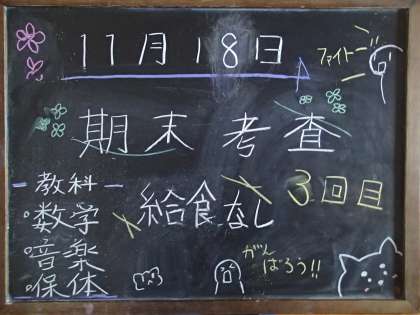 11月18日
ファイトー
期末考査
ー教科ー
・数学
・音楽
・保体
給食なし
3回目
がん
ばろう!!